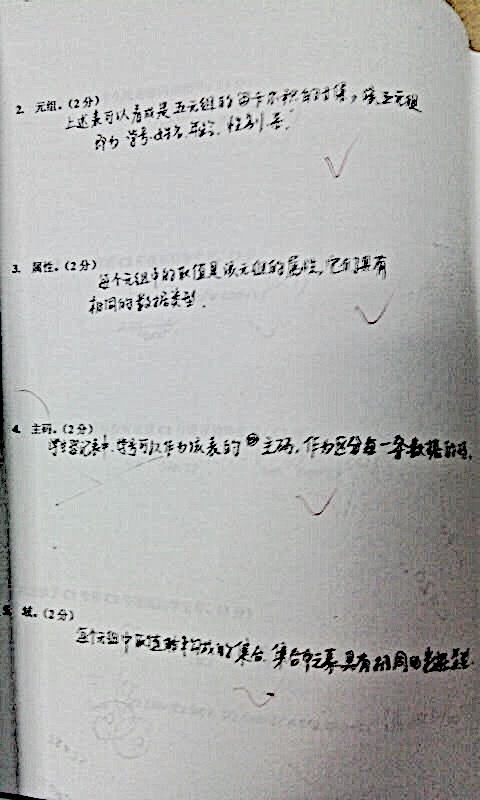 2. 元组。(2分)
上述表可以看成是五元组的笛卡尔积的子集，该五元组
即为 学号、姓名、年龄、性别、系.
3. 属性。(2分)
每个元组中的取值是该元组的属性，它们具有
相同的数据类型.
4. 主码。(2分)
学生登记表中,学号可以作为该表的 主码，作为区分每一条数据
域。(2分)
每个元组中取值 构成的集合. 集合中元素具有相同的数据类型.